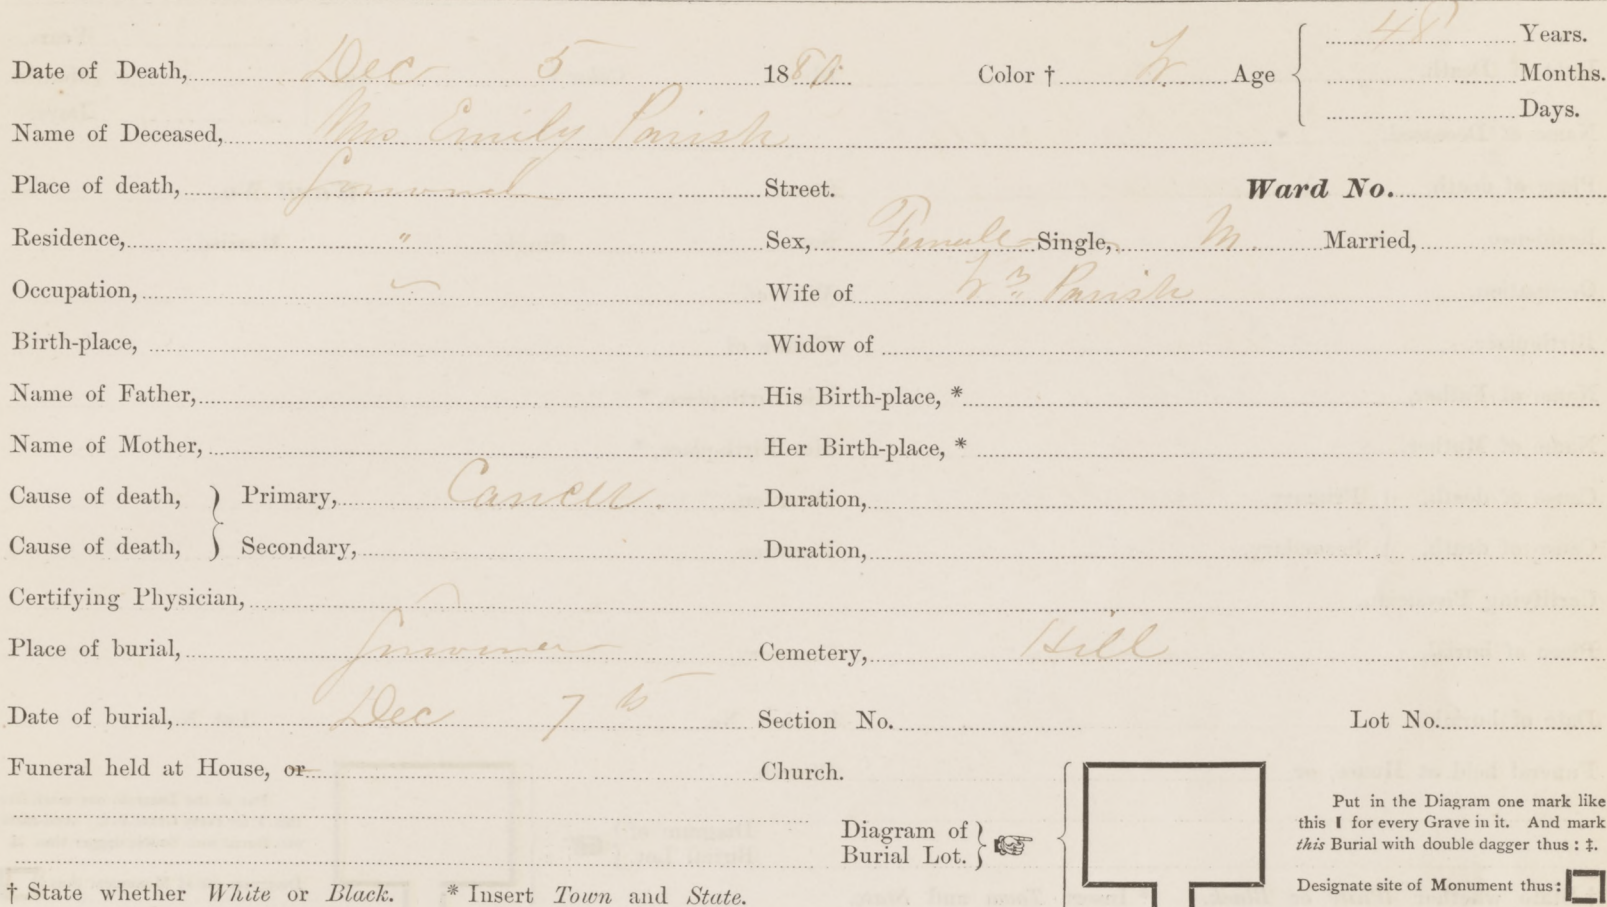 Date of Death, Dec 5 1880 Color † W Age 48 Years.
Months.
Days.
Name of Deceased, Mrs Emily Parish
Place of death, Street. Ward No.
Residence, " Sex, Female Single, M. Married,
Occupation, Wife of Wm Parish
Birth-place, Widow of
Name of Father, His Birth-place, *
Name of Mother, Her Birth-place, *
Cause of death, } Primary, Cancer. Duration,
Cause of death, } Secondary, Duration,
Certifying Physician,
Place of burial, Cemetery, Hill
Date of burial, Dec 7th Section No. Lot No.
Funeral held at House, or Church.
Diagram of
Burial Lot. }
Put in the Diagram one mark like
this I for every Grave in it. And mark
this Burial with double dagger thus : ‡.
Designate site of Monument thus:
† State whether White or Black. * Insert Town and State.